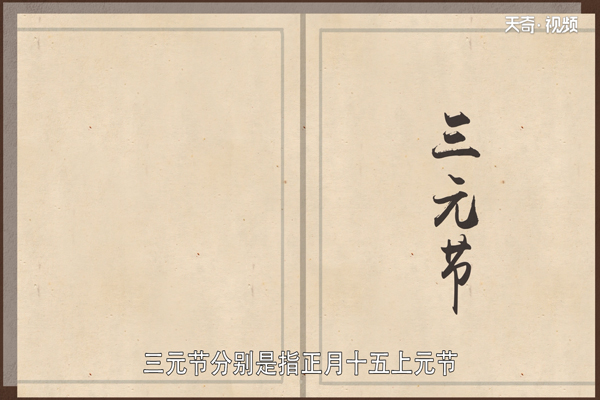 天奇·视频
三元节
三元节分别是指正月十五上元节